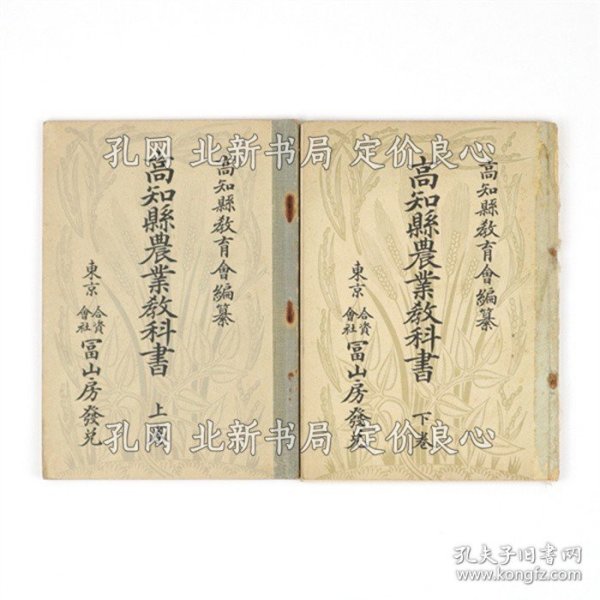 高知縣教育會編纂
高知縣農業教科書 上卷
東京 合資會社 冨山房發兌
高知縣教育會編纂
高知縣農業教科書 下卷
東京 合資會社 冨山房發兌
孔网 北新书局 定价良心
孔网 北新书局 定价良心
孔网 北新书局 定价良心
孔网 北新书局 定价良心
孔夫子旧书网
www.kongfz.com